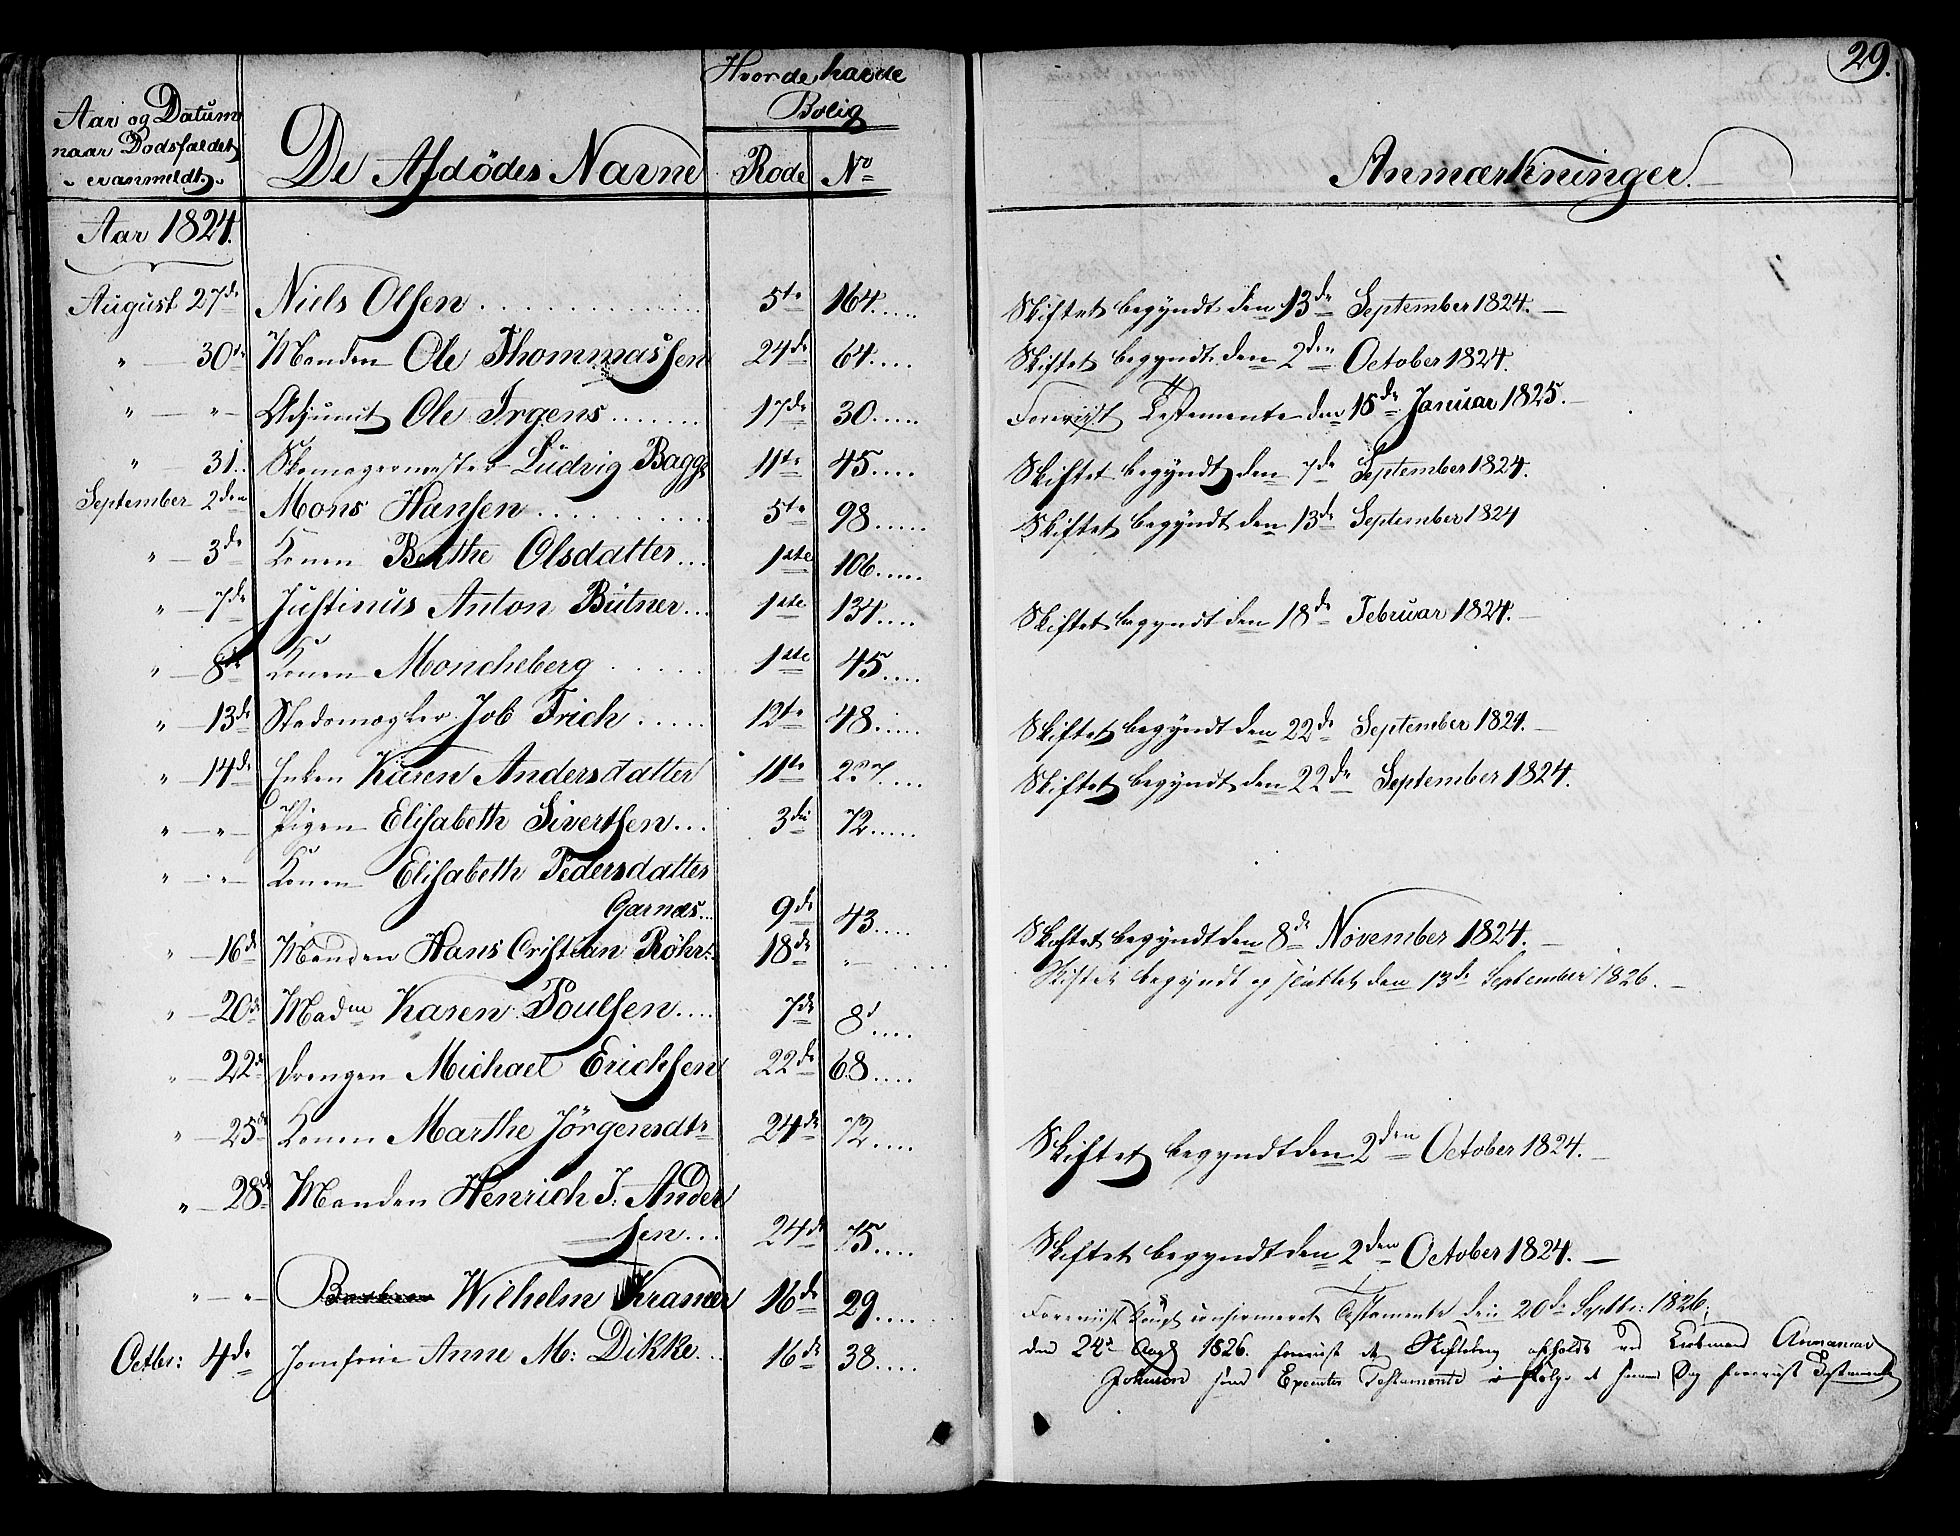 29.
Aar og Datum
naar Dødsfaldet
er anmeldt.
De Afdødes Navne
Hvor de havde
Bolig
Rode
No
Anmærkninger.
Aar 1824.
August 27de Niels Olsen 5te 164 Skiftet begyndt den 13de September 1824.
" 30te Manden Ole Thommassen 24de 64 Skiftet begyndt den 2den October 1824.
" " Adjunct Ole Irgens 17de 30 Foreviist Testamente den 15de Januar 1825.
" 31. Skomagermester Lüdvig Bagge 11te 45 Skiftet begyndt den 7de September 1824.
September 2den Mons Hansen 5te 98 Skiftet begyndt den 13de September 1824
" 3de Konen Berthe Olsdatter 1ste 106
" 7de Justinus Anton Bütner 1ste 134 Skiftet begyndt den 18de Februar 1824.
" 8de Konen Moncheberg 1ste 45
" 13de Stadsmægler Job Frich 12te 48 Skiftet begyndt den 22de September 1824.
" 14de Enken Karen Andersdatter 11te Skiftet begyndt den 22de September 1824.
" " Pigen Elisabeth Sivertsen 3die 72
" " Konen Elisabeth Pedersdatter
Garnæs 9de 43 Skiftet begyndt den 8de November 1824.
" 16de Manden Hans Cristian Röhrs 18de " Skiftet begyndt og sluttet den 13de September 1826.
" 20de Madme Karen Poulsen 7de 8d
" 22de Drengen Michael Erichsen 22de 68
" 25de Konen Marthe Jörgensdtr 24de 72 Skiftet begyndt den 2den October 1824.
" 28de Manden Henrich J. Ander
sen 24de 75 Skiftet begyndt den 2den October 1824.
" " Wilhelm Kramer 16de 29 Foreviist confirmeret Testamente den 20de Septbr: 1826.
Octbr: 4de Jomfrue Anne M: Dikke 16de 38 den 24de 1826 foreviist
Testamente